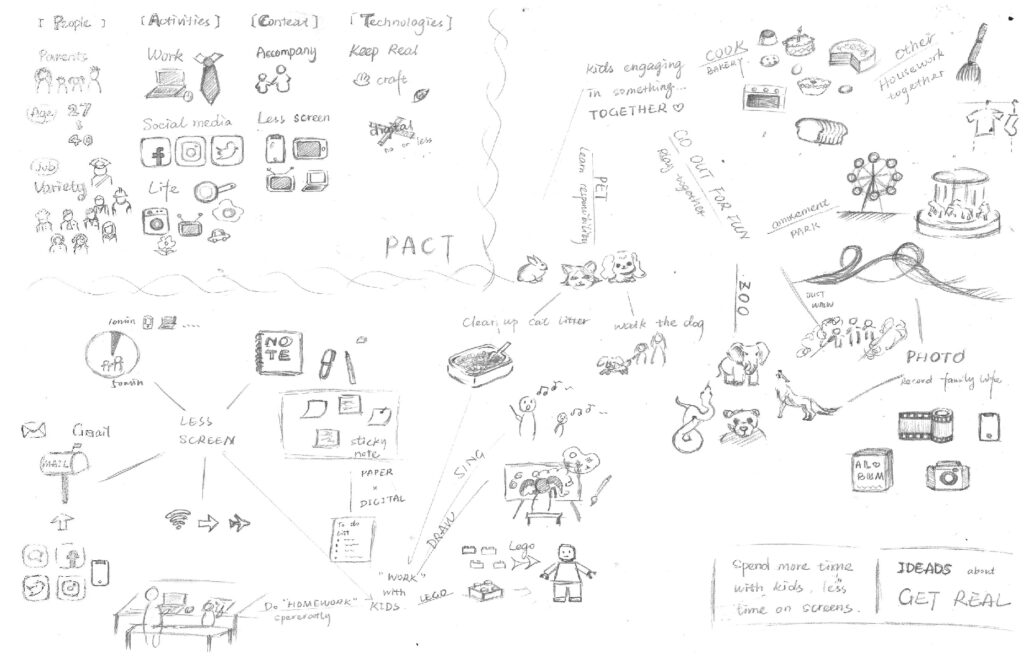 [ People ]
[ Activities ]
[ Context ]
[ Technologies ]
Parents
Age
27
40
Job
Variety
Work
Social media
Life
Accompany
Less screen
Keep Real
craft
digital
no or less
PACT
kids engaging
in something...
TOGETHER ♡
COOK
BAKERY
Other
Housework
together
GO OUT FOR FUN
play together
PET
learn responsibility
Clean up cat litter
walk the dog
amusement
PARK
JUST
WALK
ZOO
PHOTO
Record family life
AL♡
BUM
10min
50min
NO
TE
LESS
SCREEN
sticky
note
PAPER
×
DIGITAL
To do
list
Gmail
MAIL
SING
DRAW
LEGO
Lego
"WORK"
with
KIDS
Do "HOMEWORK"
spererately
Spend more time
with kids, less
time on screens.
IDEADS about
GET REAL